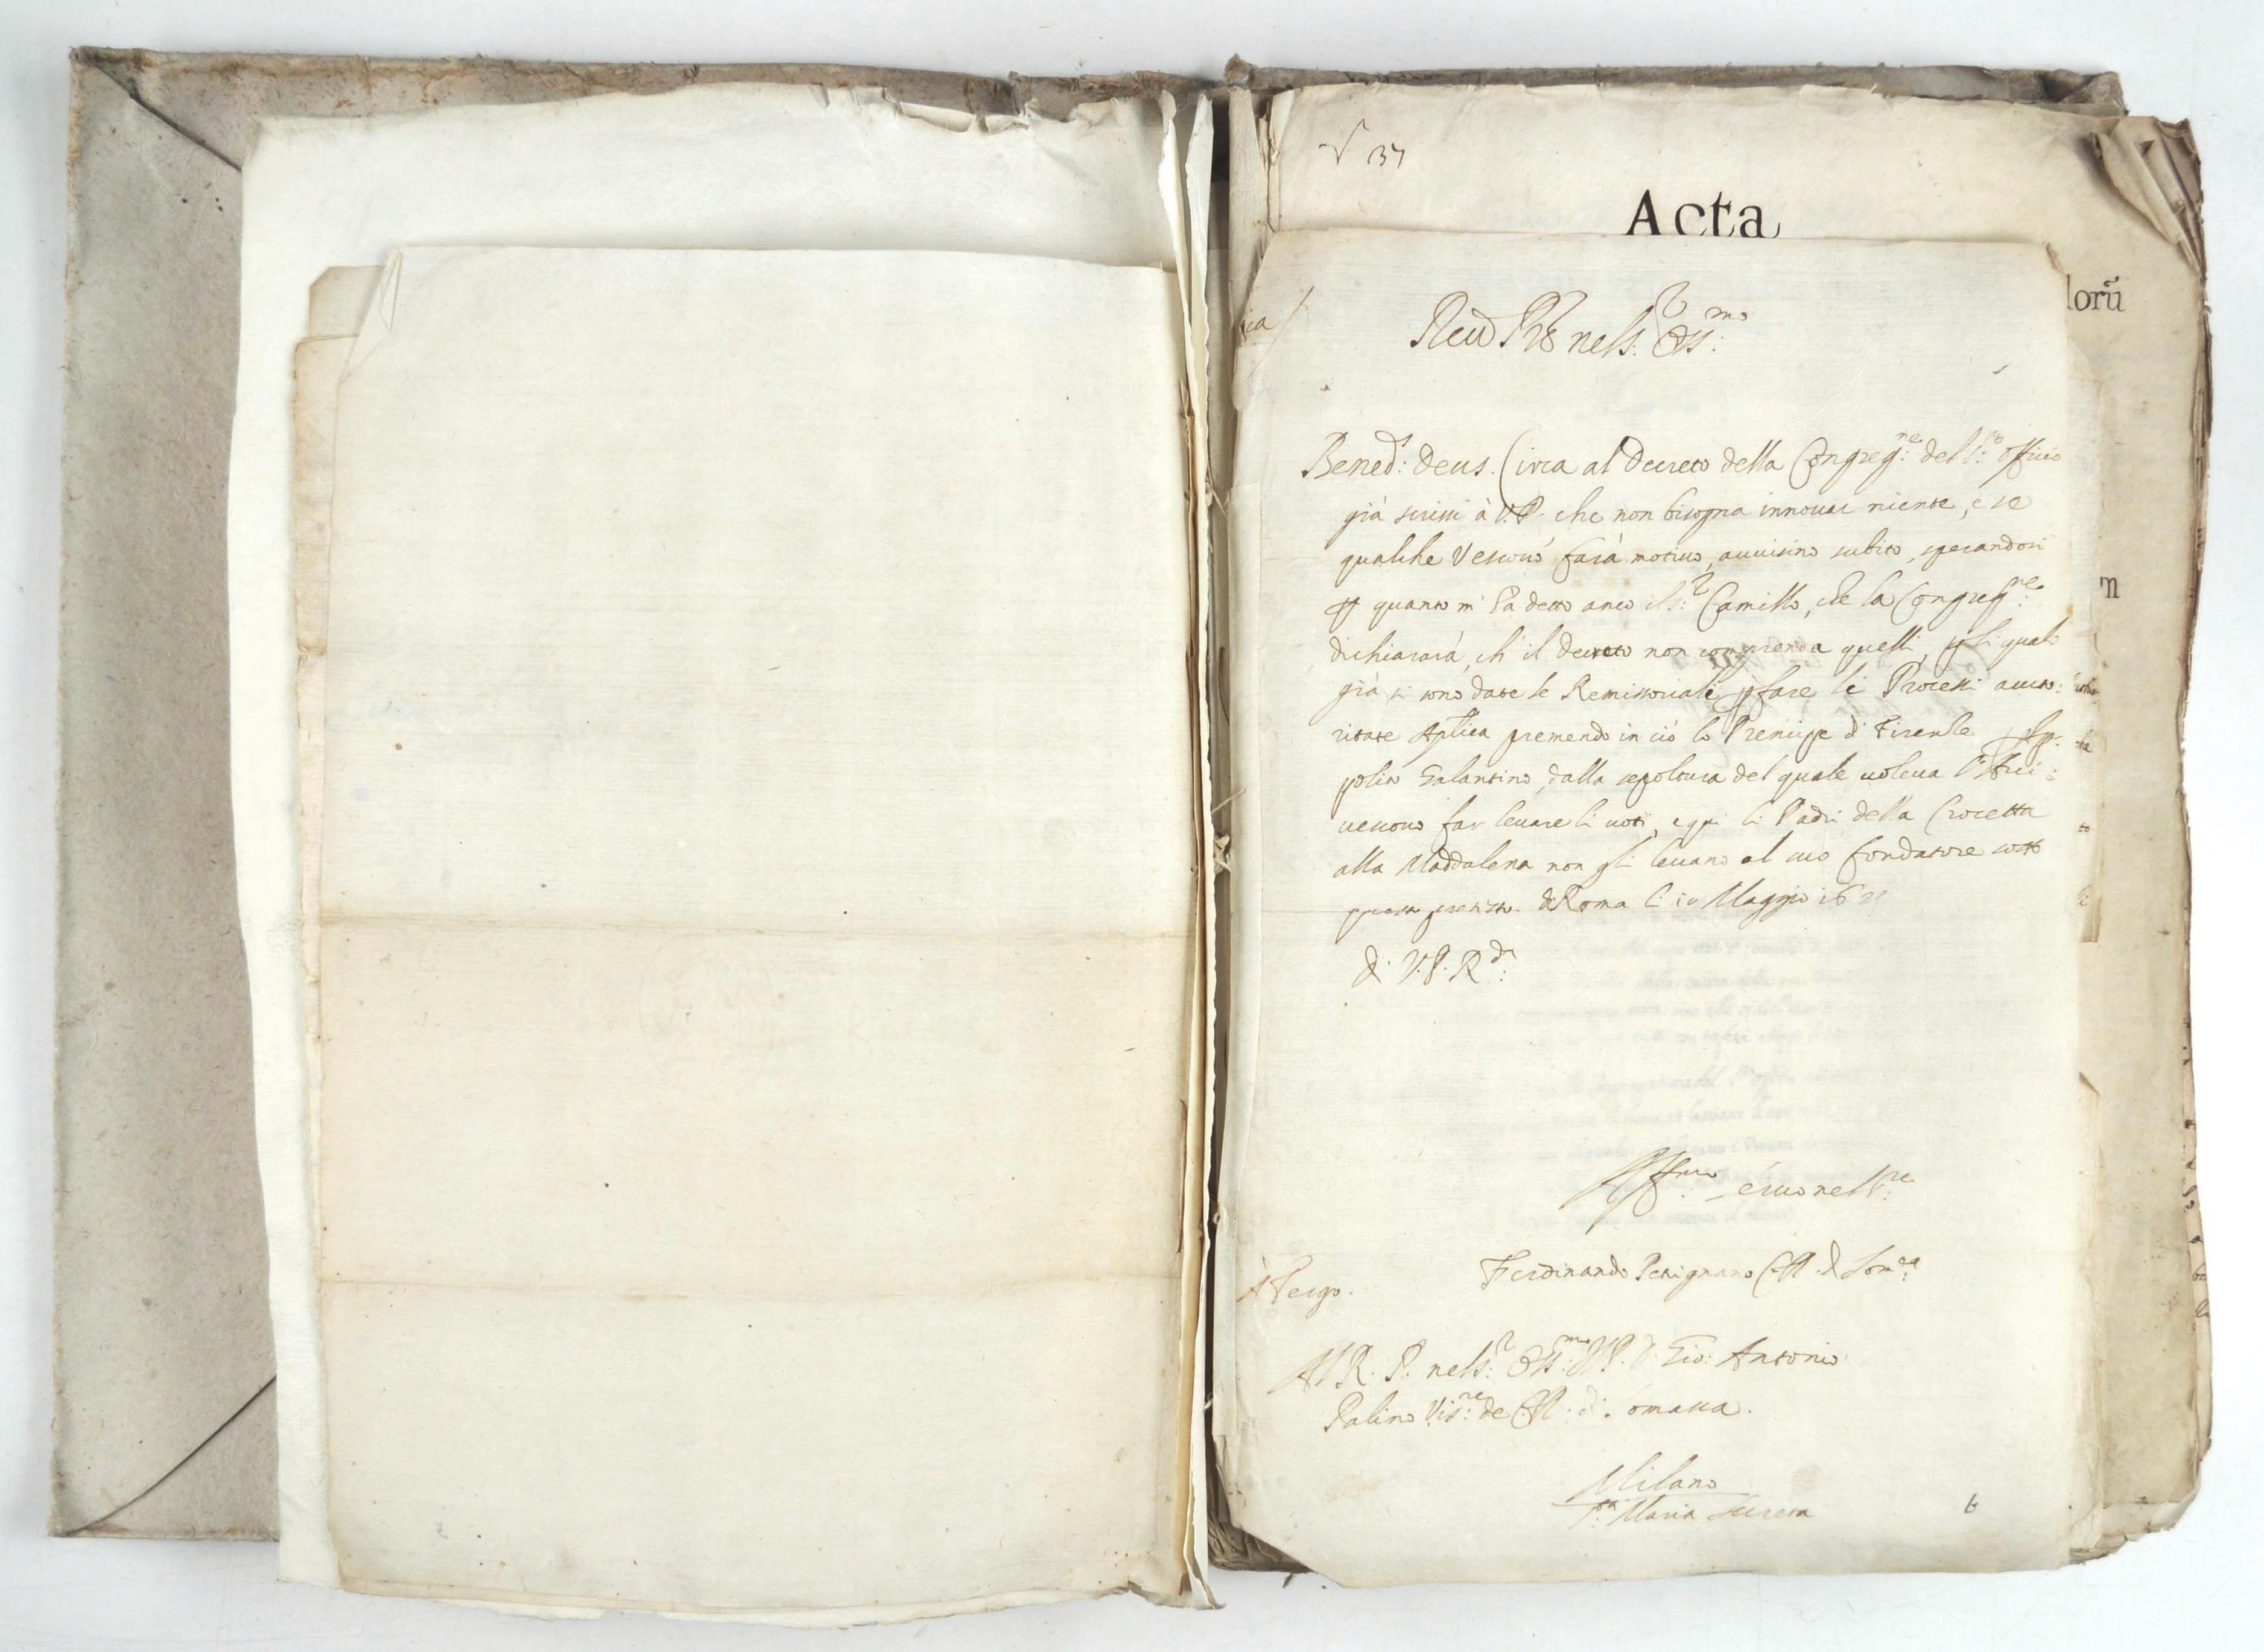 37
Acta
lorũ
ica
Reu.do P.re nel S.r Oss.mo
Bened.s Deus. Circa al Decreto della Congreg.ne del S.to Officio
già scrissi à V.P. che non bisogna innouar niente, e se
qualche Vescouo farà motiuo, auuisino subito, sperandosi
quanto m' ha detto anco il S.r Camillo, che la Congreg.ne
dichiararà, ch' il decreto non comprenda quelli, p li quali
già si sono date le Remissoriali p fare li Processi aucto:
ritate Aplica premendo in ciò lo Prencipe di Firenze
polito Galantino, dalla sepoltura del quale uoleua l'Arci:
uescouo far leuare li uoti, e qui li Padri della Crocetta
alla Maddalena non gli leuano al suo fondatore sotto
questo pretesto. di Roma li 10 Maggio 16
di V.P. R.da
Aff.mo seruo nel S.re
Ferdinando Petrignano C.R. di Som.ca
A Tergo.
Al R. P. nel S.r Oss.mo il P. D. Gio: Antonio
Palino Vis.re de C.R. di Somasca.
Milano
S.ta Maria Secreta
6
m